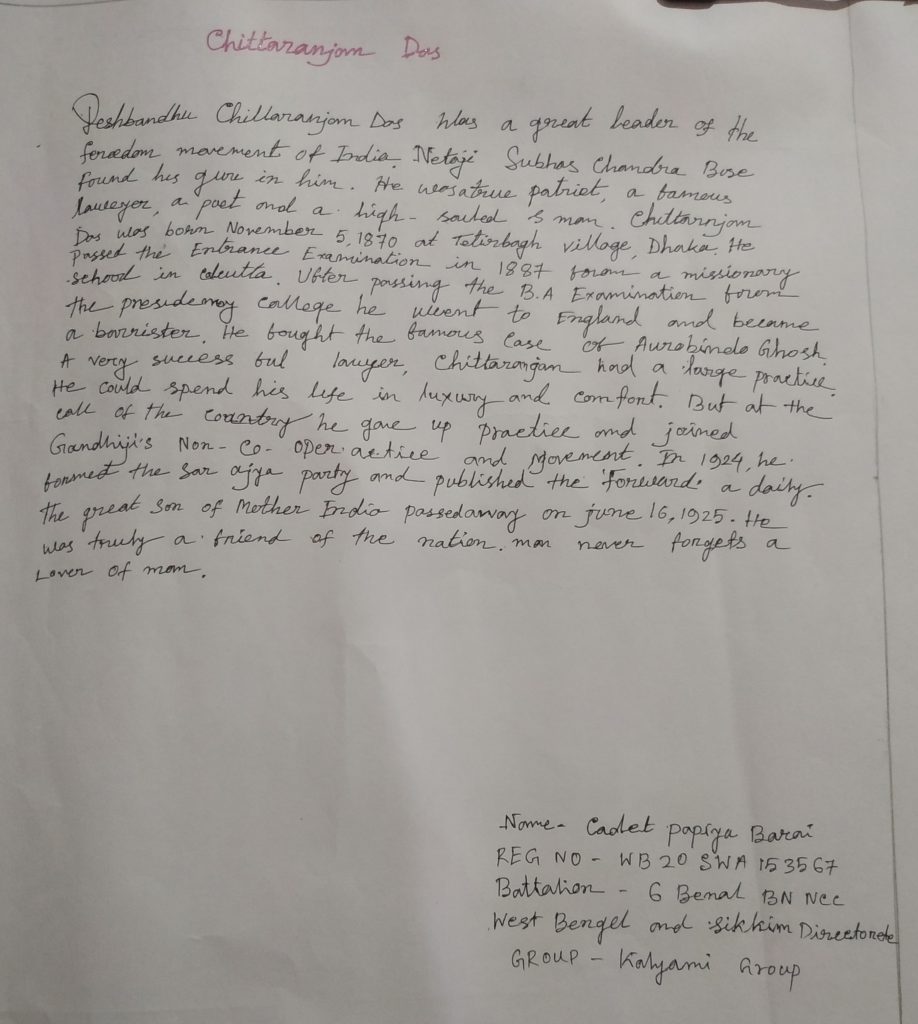 Chittaranjan Das
Deshbandhu Chillaranjan Das Was a great leader of the
feredom movement of India. Netaji Subhas Chandra Bose
found his guru in him. He wasatrue patriot, a famous
lauyer, a poet and a high-souled s man. Chittarnjan
Das was born November 5, 1870 at Tatirbagh village, Dhaka. He
passed the Entrance Examination in 1887 foram a missionary
school in calcutta. Ufter passing the B.A Examination forom
the presidency college he went to England and became
a barrister. He fought the famous Case of Aurobindo Ghosh.
A very success ful lawyer, Chittaranjan had a large practice.
He could spend his life in luxury and comfort. But at the
call of the country he gave up practice and joined
Gandhiji's Non-Co-Oper.actice and Movement. In 1924, he.
formed the Sar ajya party and published the 'Foreward' a daily.
The great Son of Mother India passedaway on june 16, 1925. He
was truly a friend of the nation. man never forgets a
Lover of man.
Name- Cadet Papiya Barai
REG NO - WB 20 SWA 153567
Battalion - 6 Benal BN Ncc
West Bengel and sikkim Directorete
GROUP - Kalyami Group